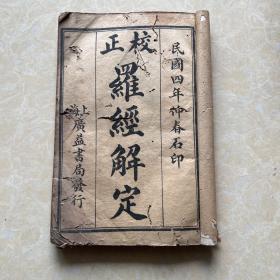 民國四年仲春石印
校正
羅經解定
上海廣益書局發行